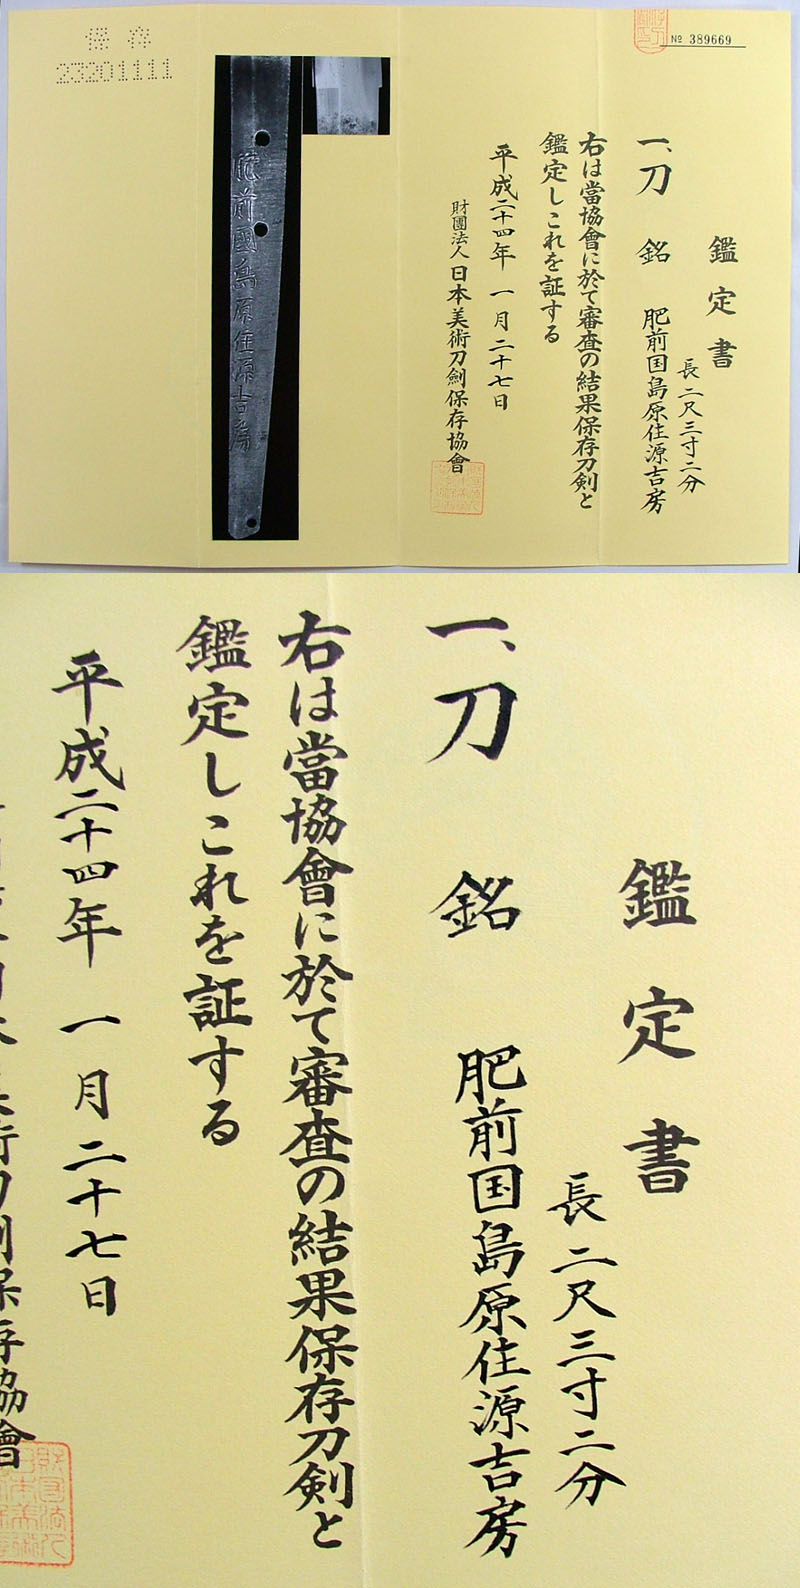 保存
23201111
№ 389669
鑑定書
一、刀 銘 肥前国島原住源吉房
長二尺三寸二分
右は當協會に於て審査の結果保存刀剣と
鑑定しこれを証する
平成二十四年 一月二十七日
財團法人 日本美術刀劍保存協會
肥前國島原住源吉房
鑑定書
長二尺三寸二分
一、刀 銘 肥前国島原住源吉房
右は當協會に於て審査の結果保存刀剣と
鑑定しこれを証する
平成二十四年 一月二十七日